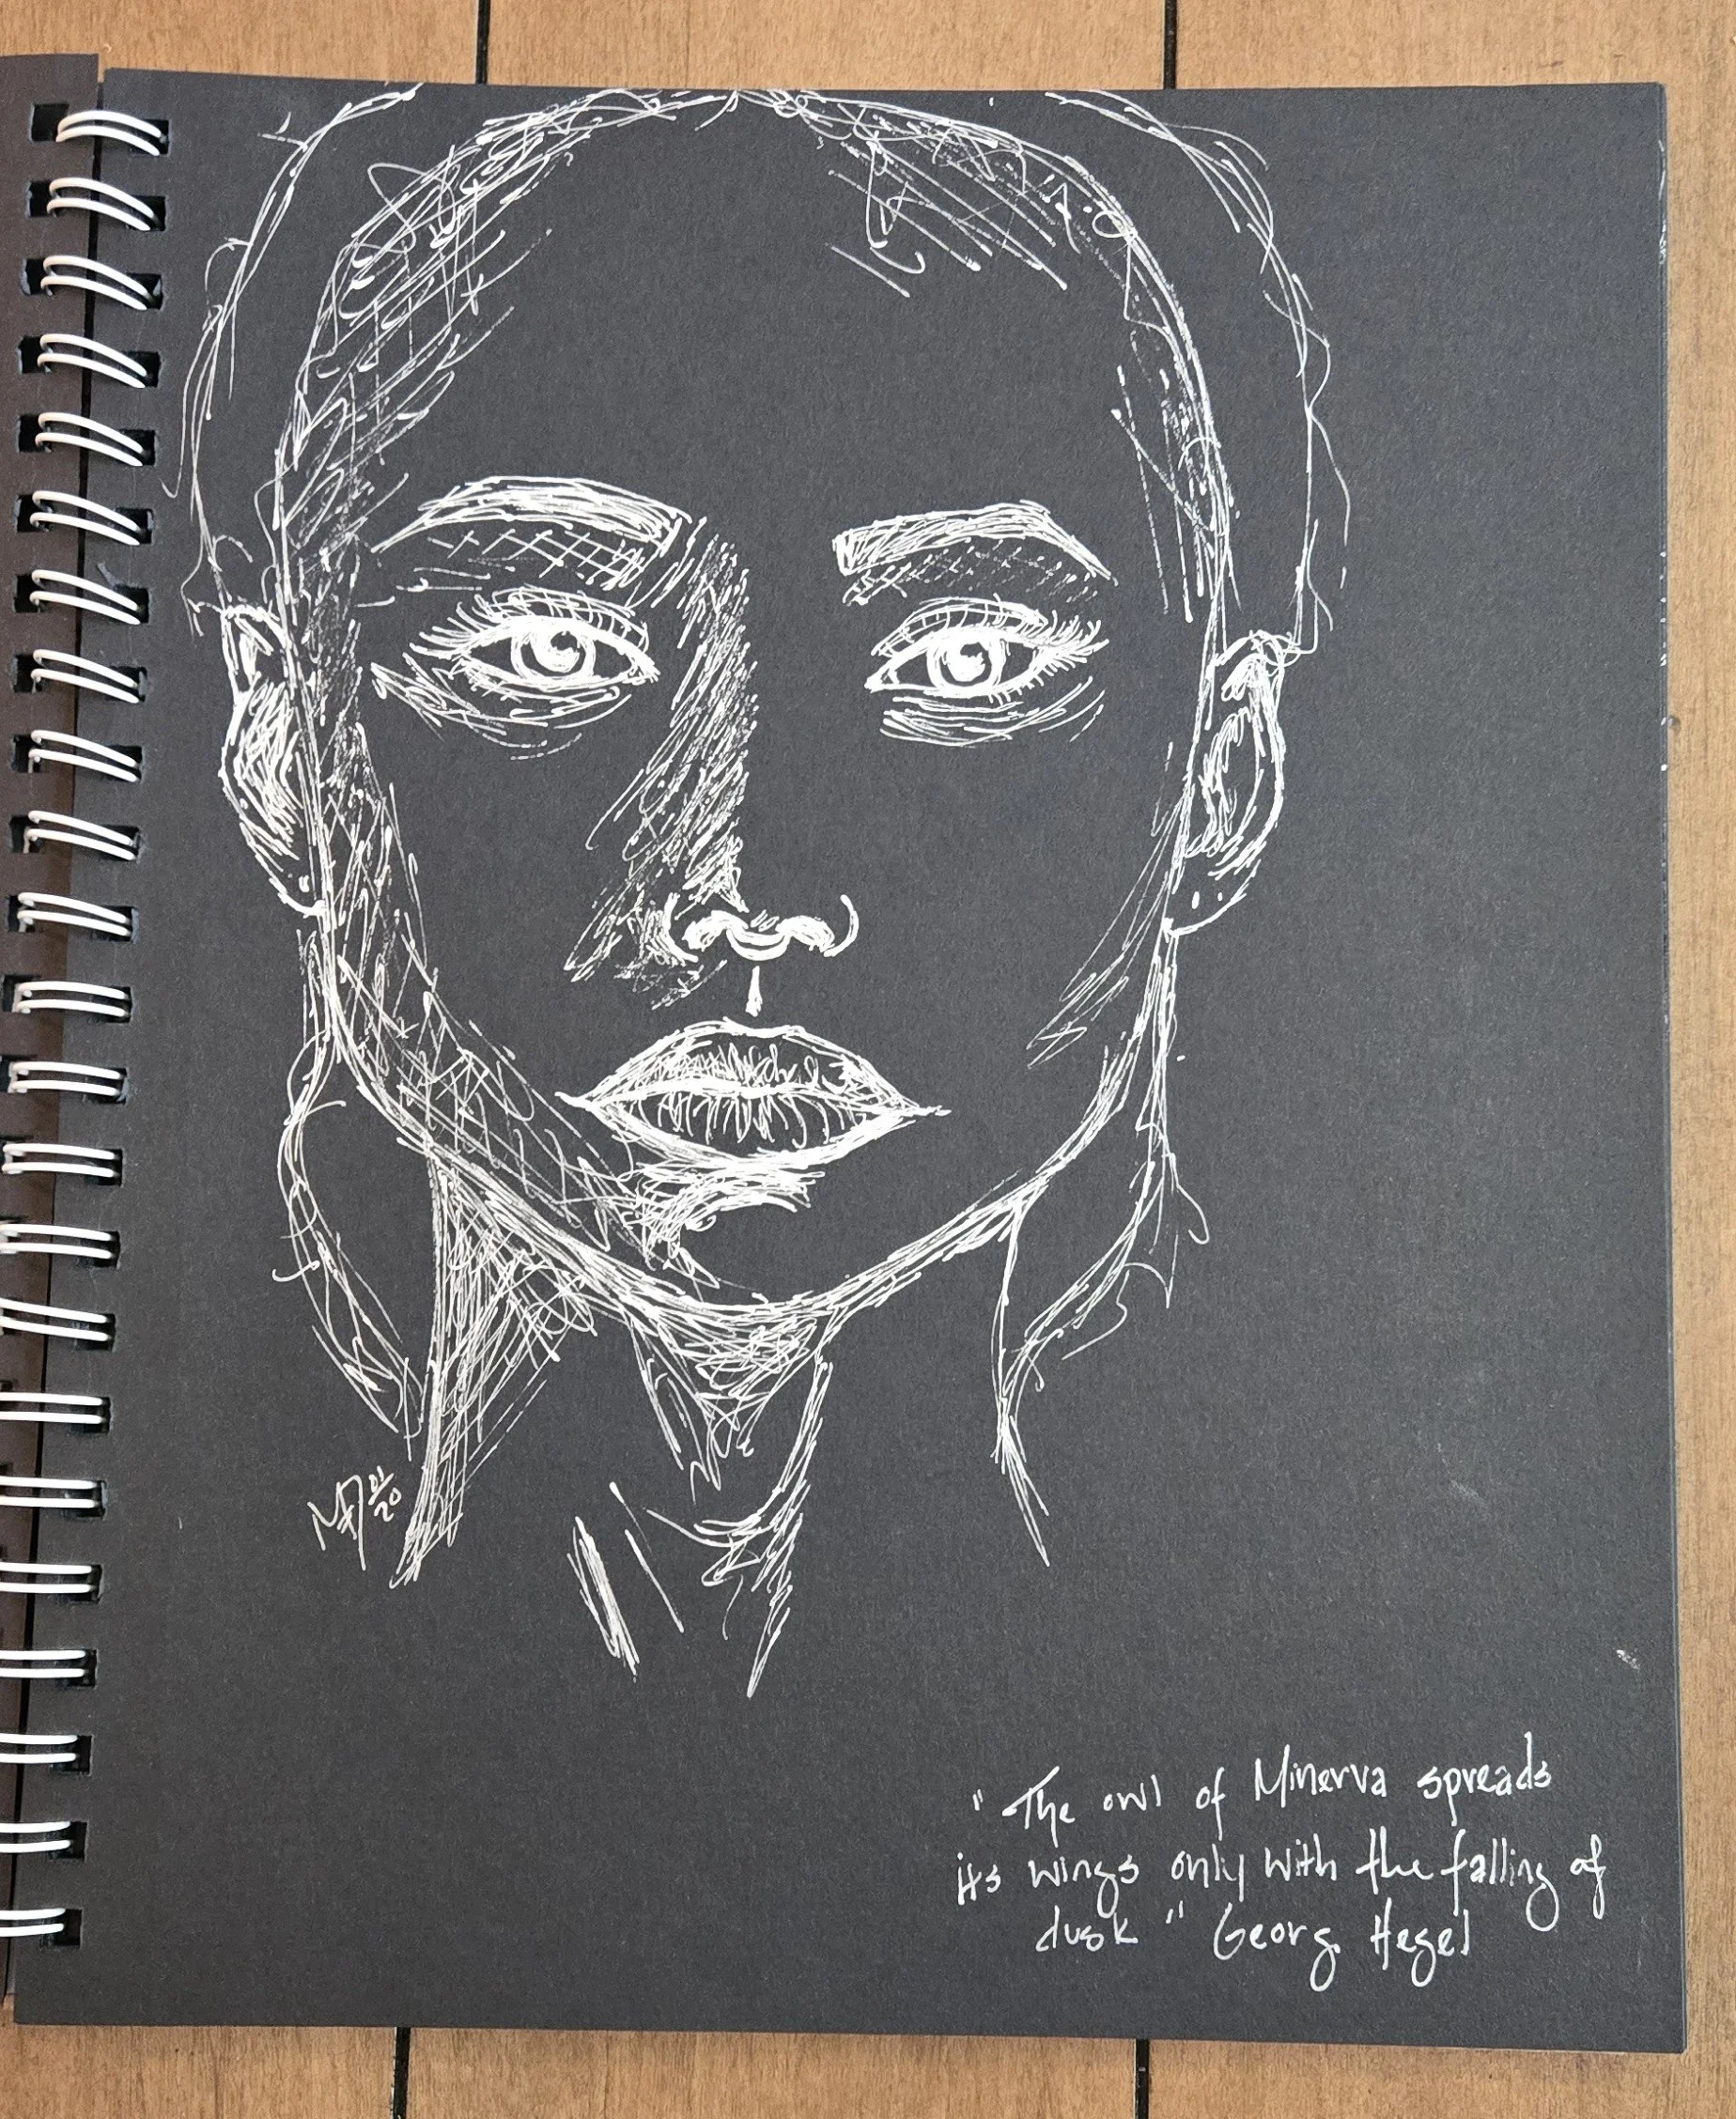 01/20
"The owl of Minerva spreads
its wings only with the falling of
dusk" Georg Hegel